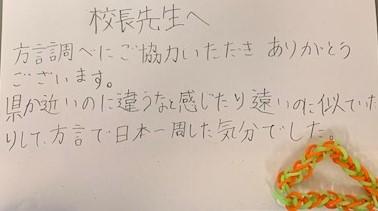 校長先生へ
方言調べにご協力いただき ありがとう
ございます。
県が近いのに違うなと感じたり遠いのに似ていた
りして、方言で日本一周した気分でした。